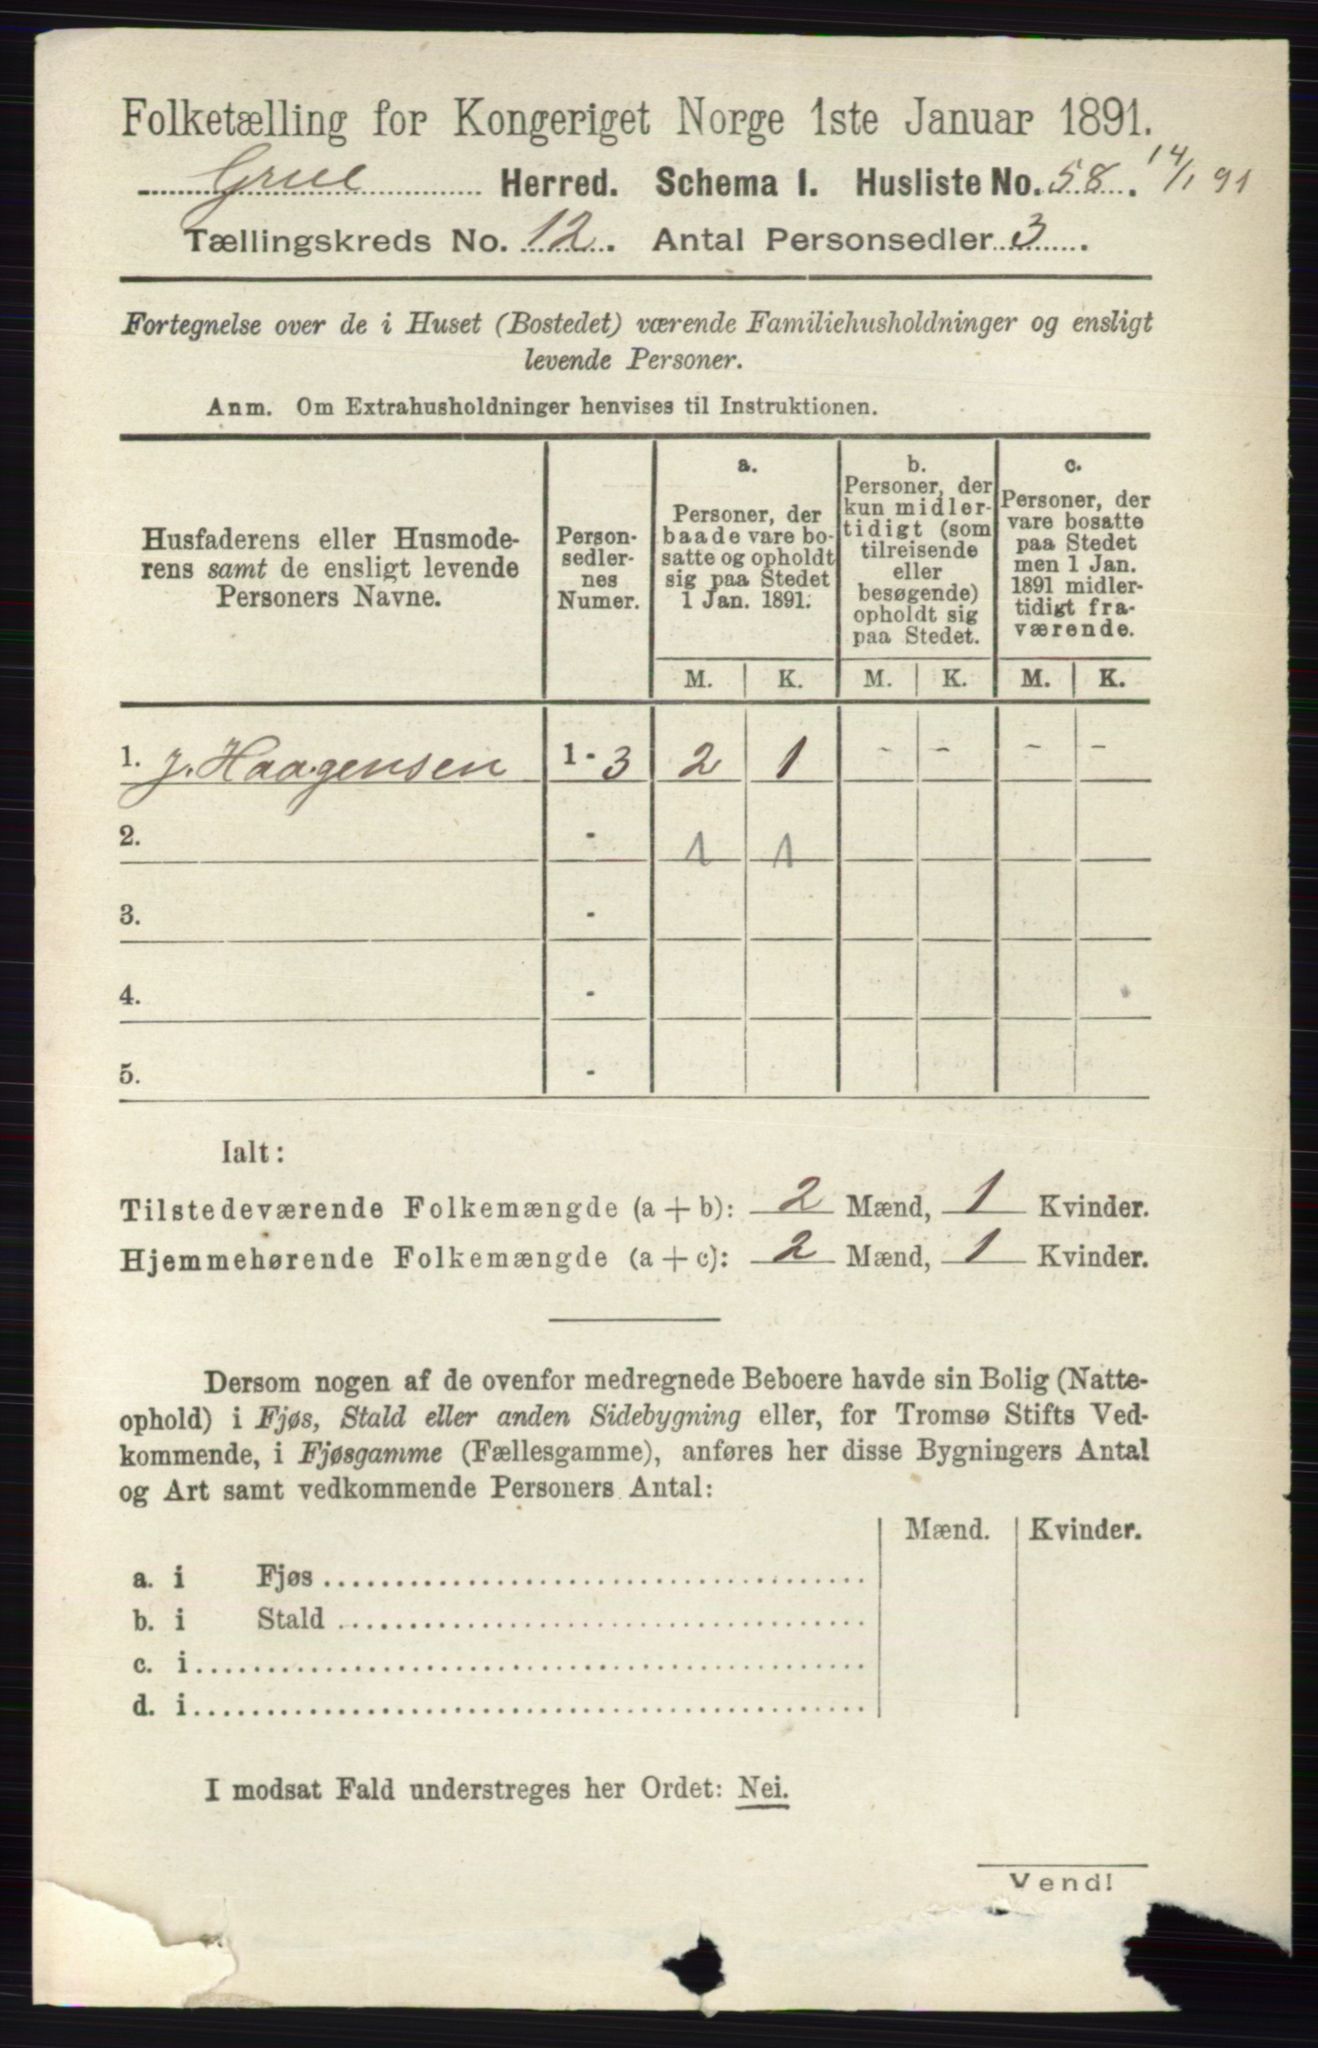 Folketælling for Kongeriget Norge 1ste Januar 1891.
Grue Herred. Schema I. Husliste No. 58. 14/1 91
Tællingskreds No. 12. Antal Personsedler 3.
Fortegnelse over de i Huset (Bostedet) værende Familiehusholdninger og ensligt
levende Personer.
Anm. Om Extrahusholdninger henvises til Instruktionen.
Husfaderens eller Husmode-
rens samt de ensligt levende
Personers Navne.
Person-
sedler-
nes
Numer.
a.
Personer, der
baade vare bo-
satte og opholdt
sig paa Stedet
1 Jan. 1891.
b.
Personer, der
kun midler-
tidigt (som
tilreisende
eller
besøgende)
opholdt sig
paa Stedet.
c.
Personer, der
vare bosatte
paa Stedet
men 1 Jan.
1891 midler-
tidigt fra-
værende.
M. K. M. K. M. K.
1. J. Haagensen 1 - 3 2 1 - - - -
2. - 1 1
3. -
4. -
5. -
Ialt:
Tilstedeværende Folkemængde (a + b): 2 Mænd, 1 Kvinder.
Hjemmehørende Folkemængde (a + c): 2 Mænd, 1 Kvinder.
Dersom nogen af de ovenfor medregnede Beboere havde sin Bolig (Natte-
ophold) i Fjøs, Stald eller anden Sidebygning eller, for Tromsø Stifts Ved-
kommende, i Fjøsgamme (Fællesgamme), anføres her disse Bygningers Antal
og Art samt vedkommende Personers Antal:
Mænd. Kvinder.
a. i Fjøs
b. i Stald
c. i
d. i
I modsat Fald understreges her Ordet: Nei.
Vend!